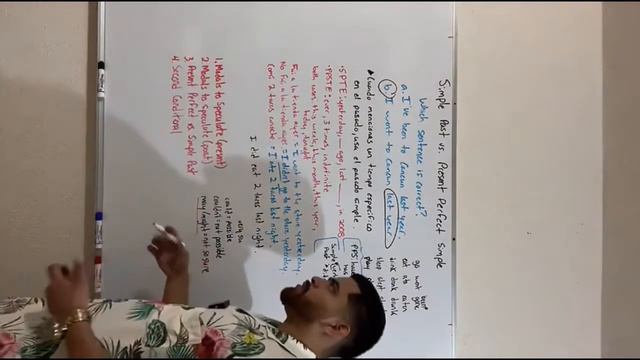 Simple Past vs. Present Perfect Simple
Which sentence is correct?
a. I've been to Cancun last year.
b. I went to Cancun last year
Cuando mencionas un tiempo especifico
en el pasado, usa el pasado simple.
SPTE: yesterday, ___ ago, last ___, in 2008
PPSTE: ever, 3 times, indefinite
both uses: this week, this month, this year,
today, tonight
Fui a la tienda ayer = I went to the store yesterday.
No fui a la tienda ayer. = I didn't go to the store yesterday.
Comi 2 tacos anoche = I ate 2 tacos last night.
I did not 2 tacos last night.
go went gone
been
eat ate eaten
drink drank drunk
sleep slept
play
PPS
Simple
Past
1. Modals to Speculate (present)
2. Modals to Speculate (past)
3. Present Perfect vs Simple Past
4. Second Conditional
could = possible
couldn't = not possible
may/might = not so sure